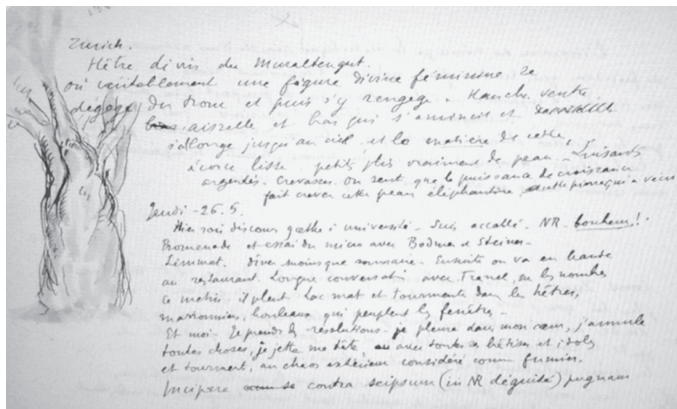 Zurich.
Hêtre divin du Muraltengut.
où véritablement une figure divine féminine se
dégage du tronc et puis s'y rengage. Hanche, ventre
aisselle et bras qui s'amincit et
s'allonge jusqu'au ciel et la matière de cette
écorce lisse petits plis vraiment de peau. Luisants
argentés. Crevasses. On sent que la puissance de croissance
fait crever cette peau éléphantine
Jeudi - 26.5.
Hier soir discours gœthe à université. Suis accablé. NR. bonheur!
Promenade et essai du mieux avec Bodmer et Steiner.
Limmat. Dîner moins que sommaire. Ensuite on va en bande
au restaurant. Longue conversation avec sur les nombres
Ce matin il pleut. Lac mat et tourmente dans les hêtres,
marronniers, bouleaux qui peuplent les fenêtres.
Et moi. Je prends les résolutions - je pleure dans mon cœur, j'annule
toutes choses, je jette ma tête avec toutes ses bêtises et idols
et tourments, au chaos extérieur considéré comme fumier.
Incipere se contra seipsum (in NR déguisé) pugnam